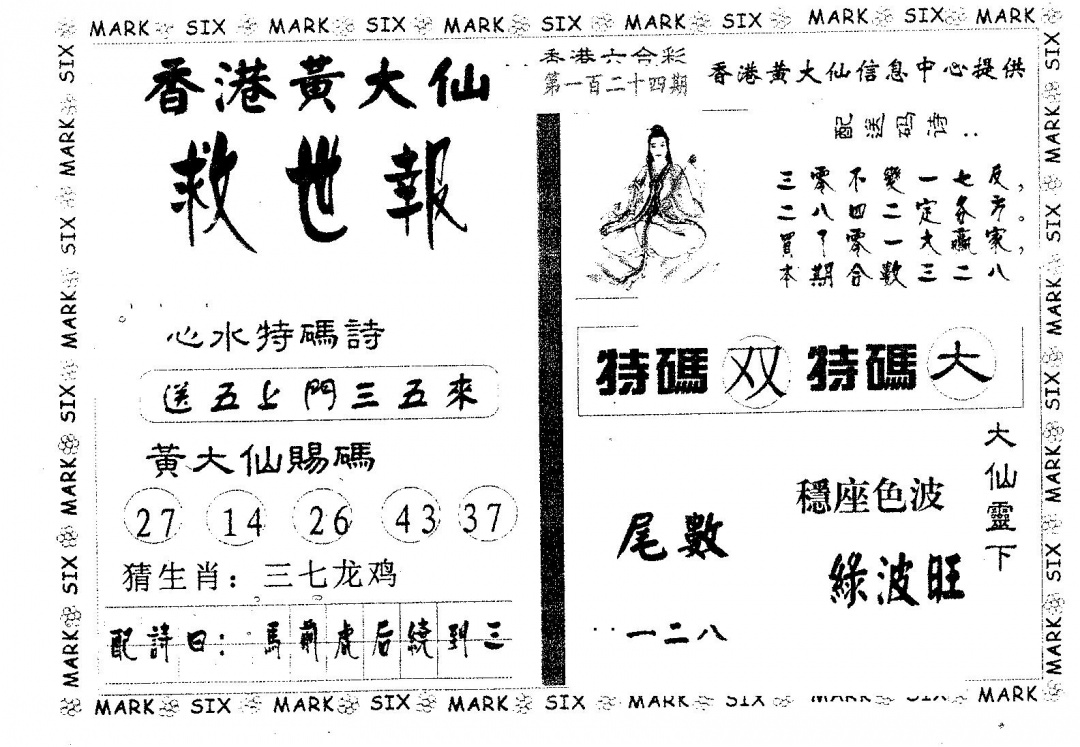 MARK SIX MARK SIX MARK SIX MARK SIX MARK SIX MARK
香港黃大仙
救世報
心水特碼詩
送五上門三五來
黃大仙賜碼
27 14 26 43 37
猜生肖：三七龙鸡
配詩曰：馬前虎后繞到三
香港六合彩
第一百二十四期
香港黃大仙信息中心提供
配送码诗：
三零不變一七反，
二八四二定多方。
買了零一大贏家，
本期合数三二八
特碼 双 特碼 大
大仙靈下
穩座色波
綠波旺
尾數
一二八
MARK SIX MARK SIX MARK SIX MARK SIX MARK SIX MARK